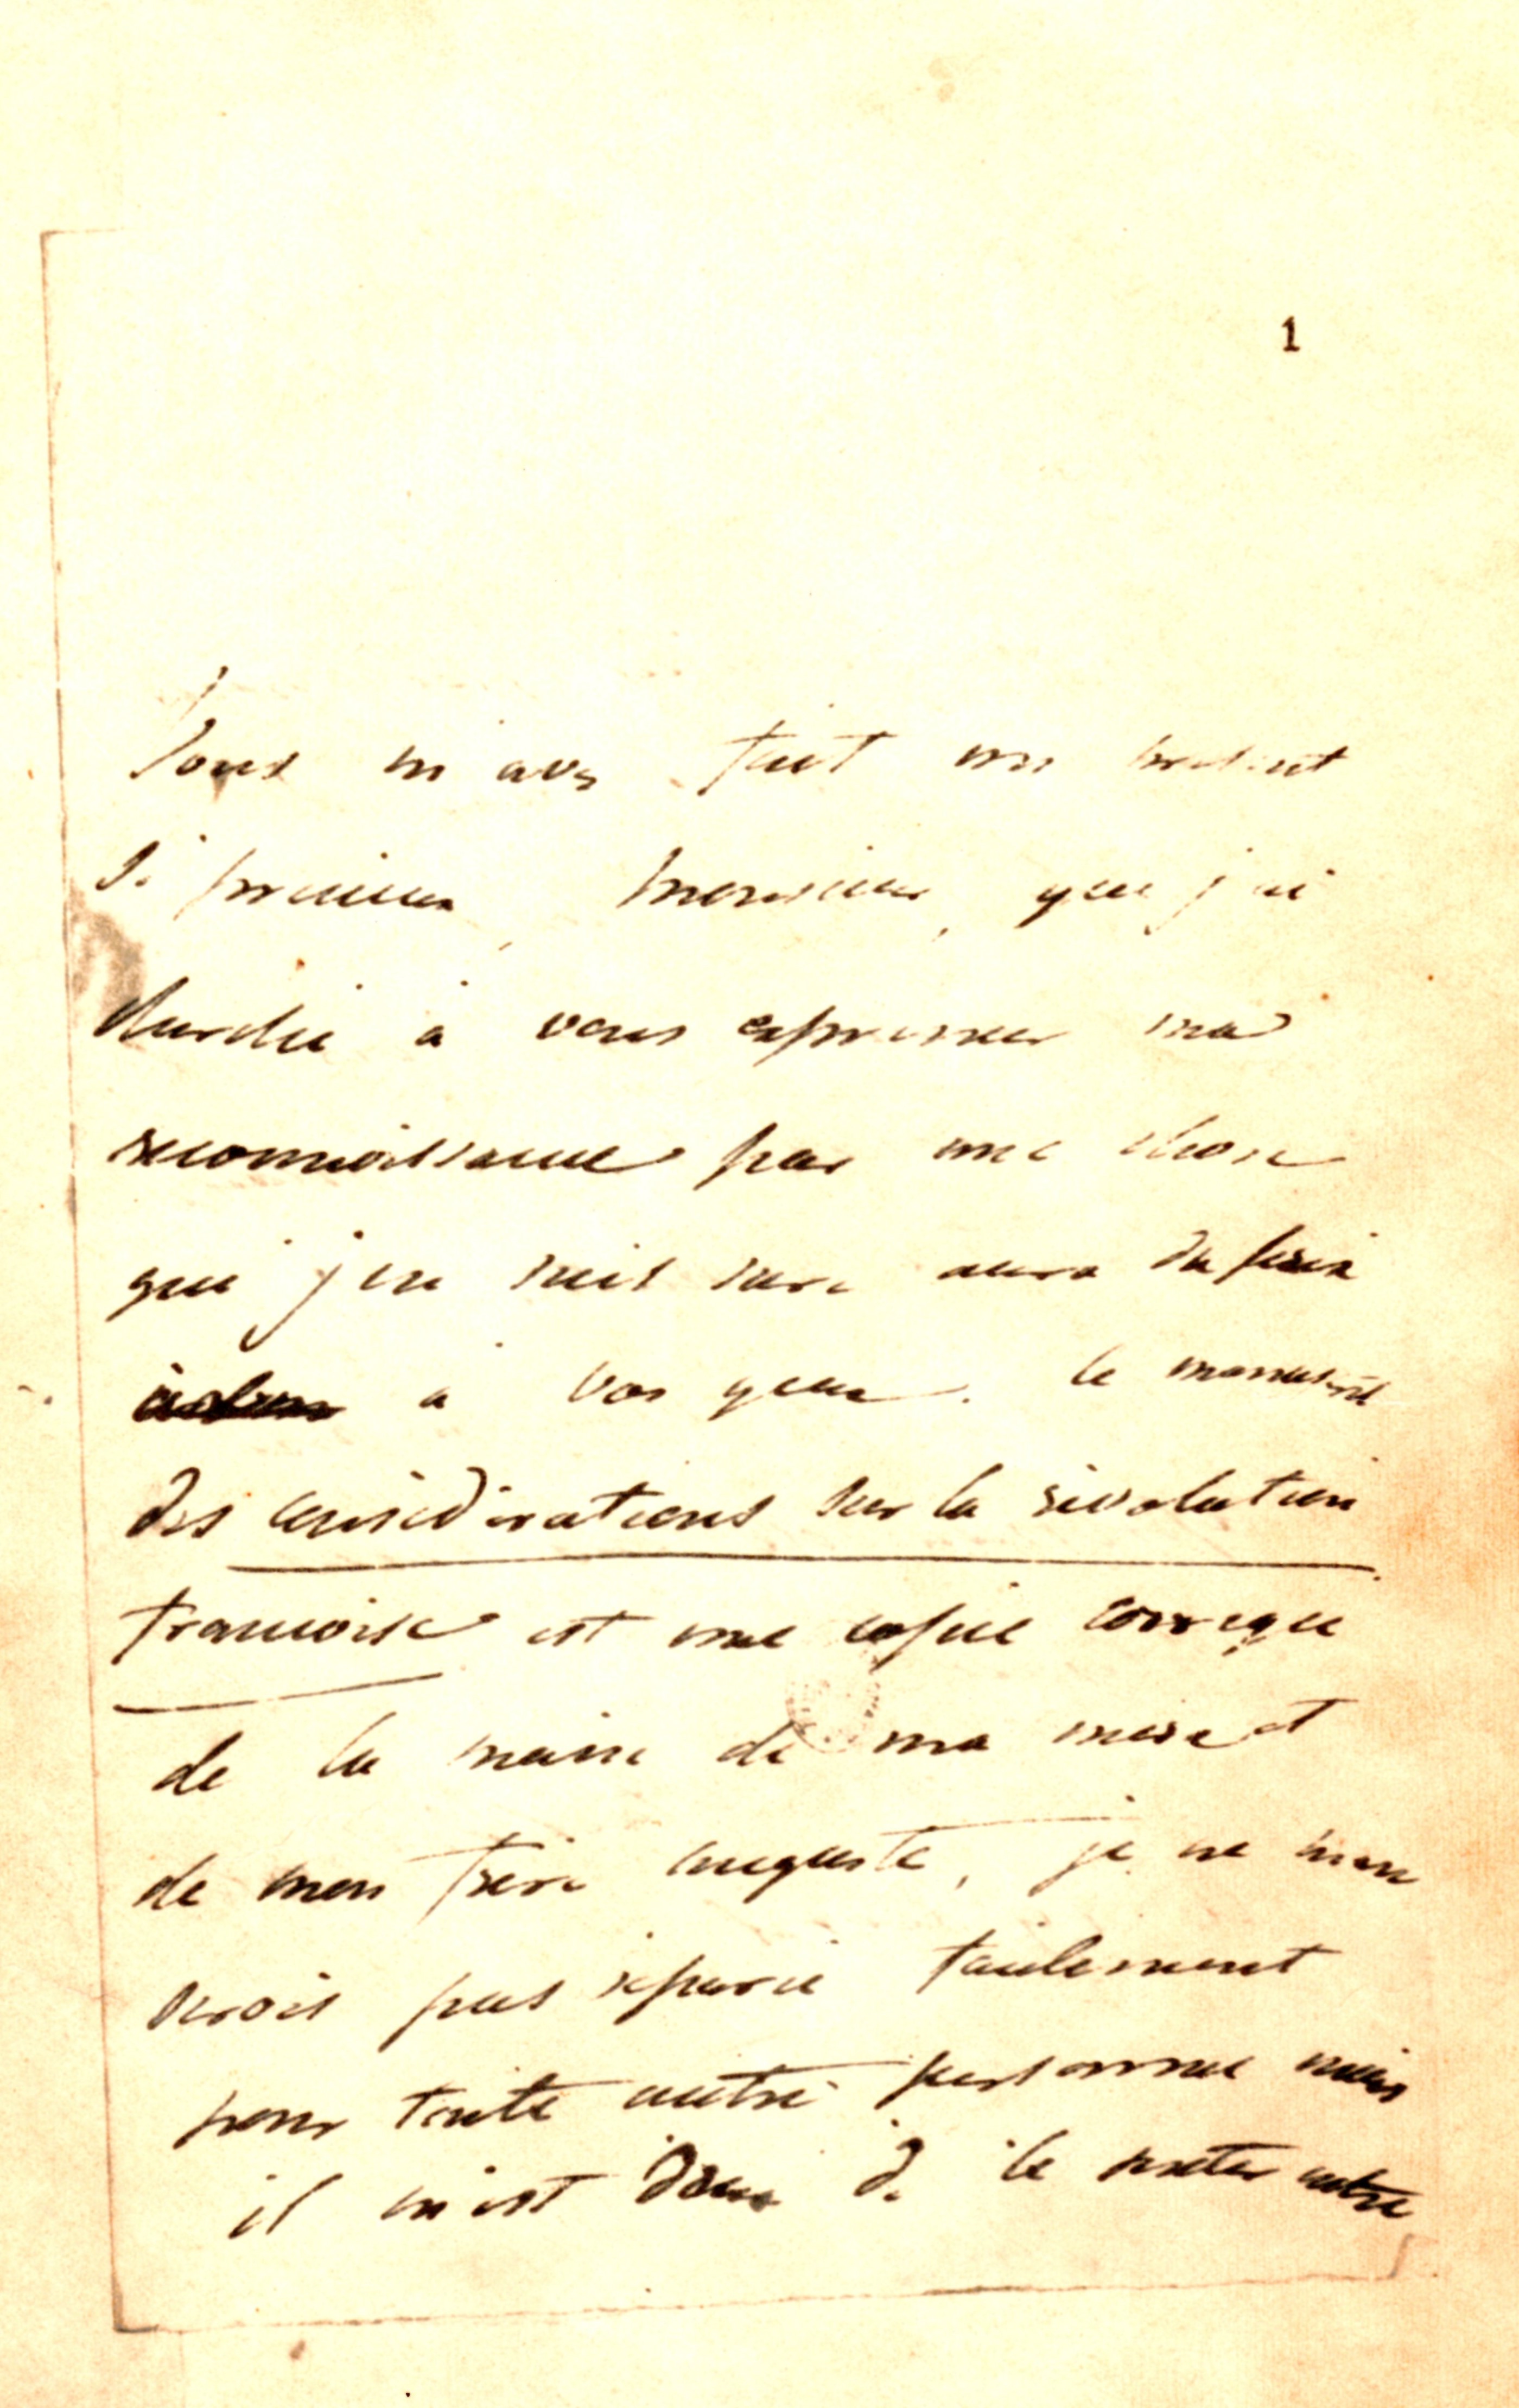 1
Vous m'avez fait un present
si precieux, Monsieur, que j'ai
cherché à vous exprimer ma
reconnoissance par une chose
qui j'en suis sure aura du prix
à vos yeux. le manuscrit
des considérations sur la révolution
francoise est une copie corrigée
de la main de ma mere et
de mon frere auguste, je ne m'en
serois pas séparée facilement
pour toute autre personne mais
il m'est doux de le mettre entre